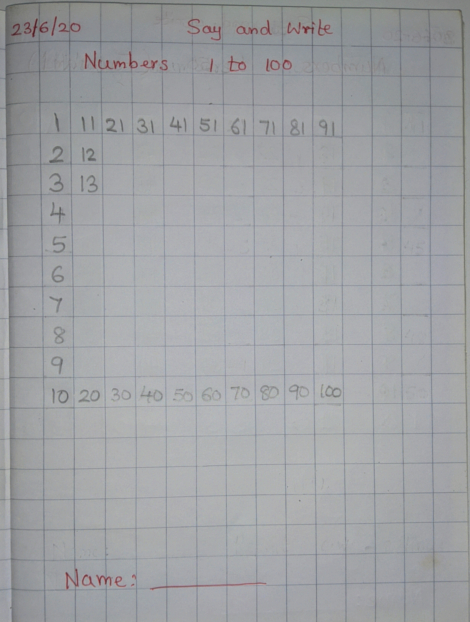 23/6/20 Say and Write
Numbers 1 to 100
1 11 21 31 41 51 61 71 81 91
2 12
3 13
4
5
6
7
8
9
10 20 30 40 50 60 70 80 90 100
Name: ________